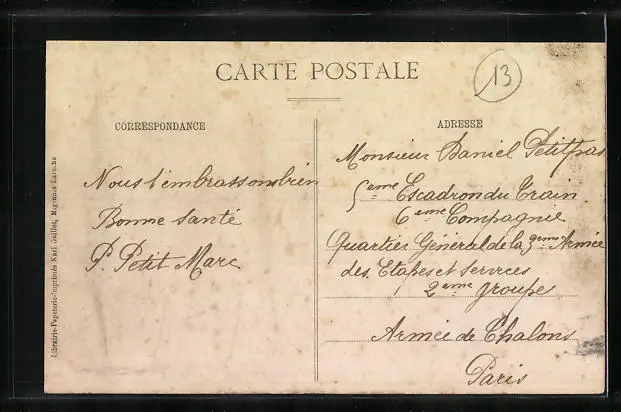 CARTE POSTALE
13
CORRESPONDANCE
Nous t'embrassons bien
Bonne Santé
P. Petit Marc
ADRESSE
Monsieur Daniel Petitpas
5eme Escadron du Train
6eme Compagnie
Quartier Général de la 3eme Armée
des Etapes et Services
2eme groupe
Armée de Chalons
Paris
Librairie-Papeterie-Imprimés Karl Guillot, Mignaux-Laroche